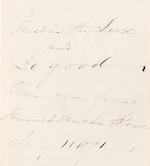 Trust in the Lord
and
Do good
From your friend
Harriet Beecher Stowe
July